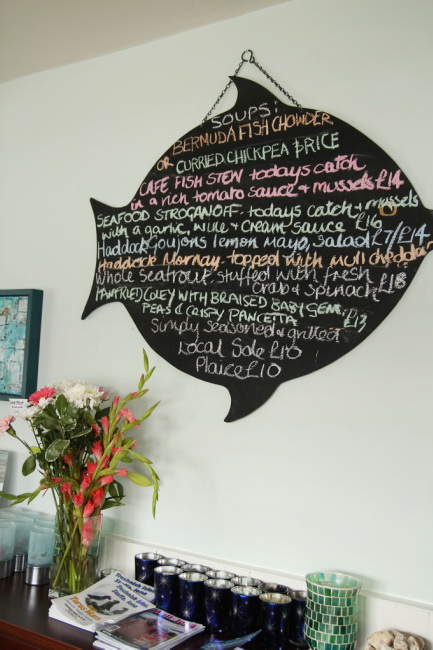 SOUPS:
BERMUDA FISH CHOWDER
OR CURRIED CHICKPEA & RICE
CAFE FISH STEW todays catch
in a rich tomato sauce & mussels £14
SEAFOOD STROGANOFF - todays catch & mussels
with a garlic, wine & cream sauce £16
Haddock Goujons lemon mayo, salad £7/£14
Haddock Mornay - topped with mull cheddar
Whole seatrout, stuffed with fresh
crab & spinach £18
PANFRIED COLEY WITH BRAISED BABY GEM
PEAS & CRISPY PANCETTA £13
Simply seasoned & grilled
Local Sole £10
Plaice £10